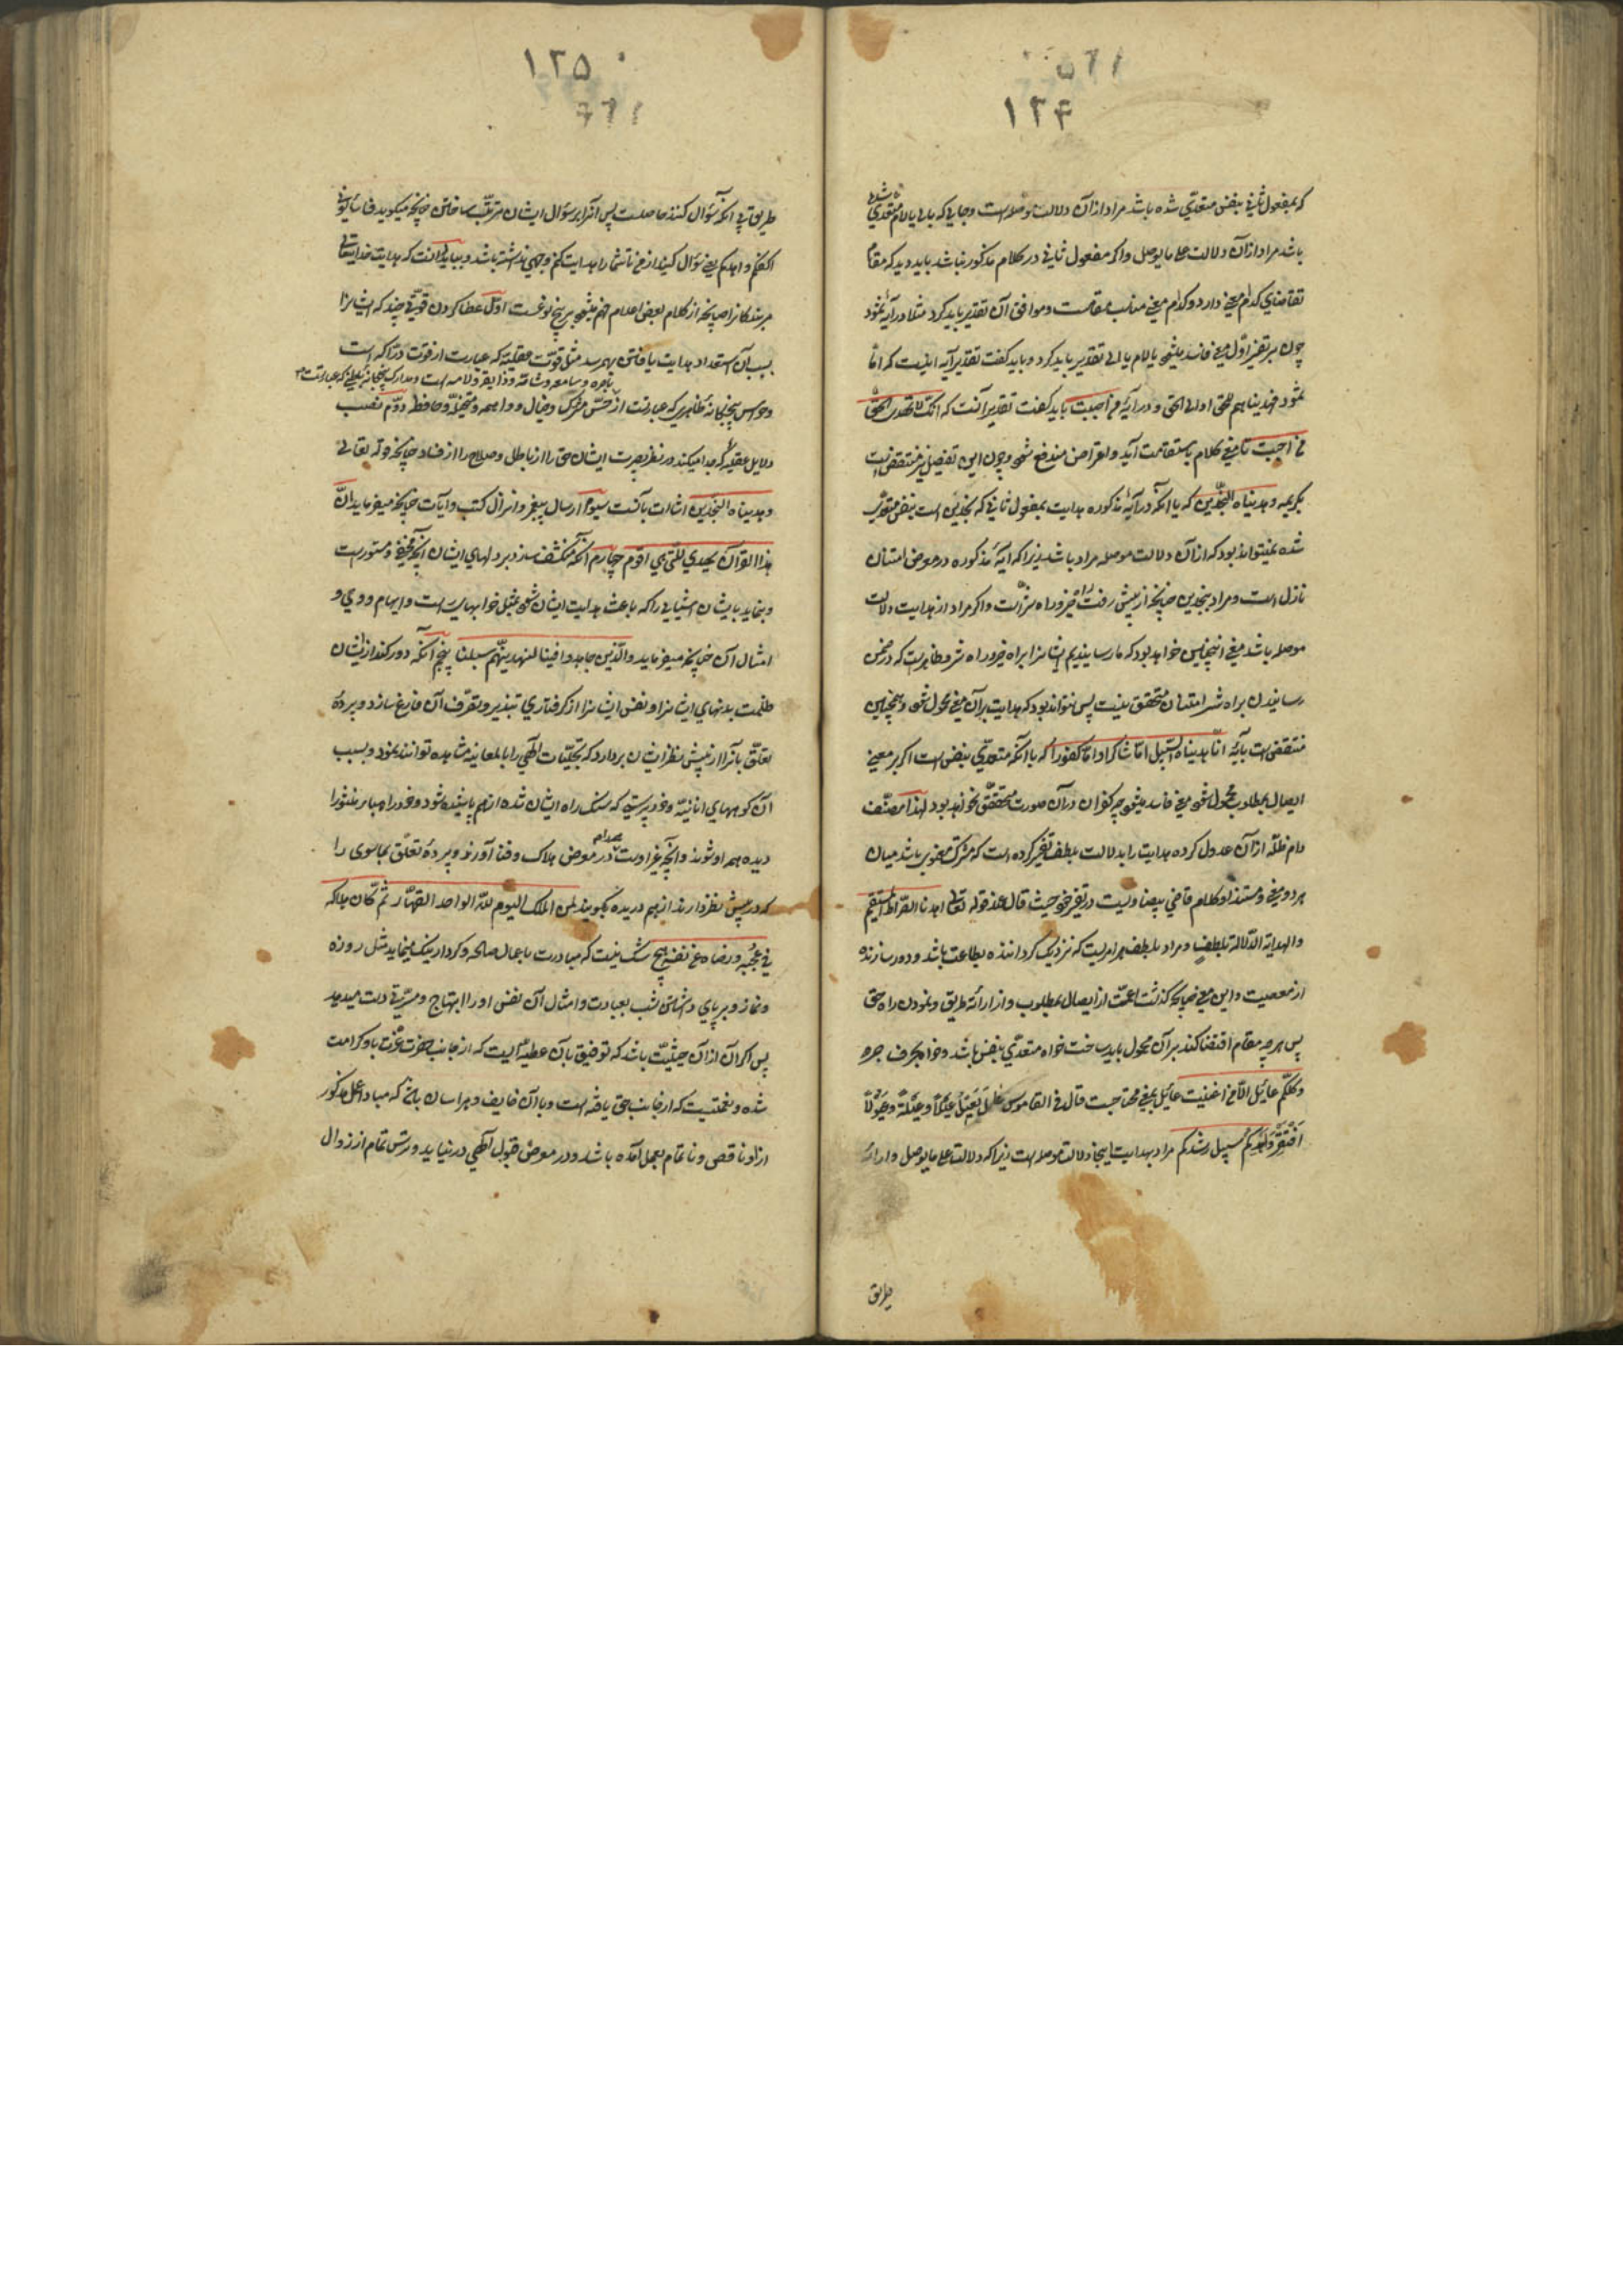 ۱۲۴
که بمفعول ثانی بنفس متعدی شده باشد مراد از آن دلالت موصله است و جایی که بالی یا لام متعدی شده
باشد مراد از آن دلالت علی ما یوصل و اگر مفعول ثانی در کلام مذکور نباشد باید دید که مقام
تقاضای کدام معنی دارد و کدام معنی مناسب مقامست و موافق آن تقدیر باید کرد مثلا در آیه ثمود
چون بر تقدیر اول معنی فاسد میشود یا لام یا الی تقدیر باید کرد و باید گفت تقدیر آیه اینست که اما
ثمود فهدیناهم للحق او الی الحق و در آیه من احببت باید گفت تقدیر آنست که انک لا تهدی الحق
من احببت تا معنی کلام باستقامت آید و اعتراض مندفع شود و چون این تفصیل نیز منتقض است
بکریمه و هدیناه النجدین که با آنکه در آیه مذکوره هدایت بمفعول ثانی که نجدین است بنفس متعدی
شده نمیتواند بود که از آن دلالت موصله مراد باشد زیرا که آیه مذکوره در معرض امتنان
نازل است و مراد بنجدین چنانچه از پیش رفت راه خیر و راه شر است و اگر مراد از هدایت دلالت
موصله باشد معنی اینچنین خواهد بود که ما رسانیدیم ایشانرا براه خیر و راه شر و ظاهر است که در ضمن
رسانیدن براه شر امتنان متحقق نیست پس نتواند بود که هدایت بر آن معنی محمول شود و همچنین
منتقض است بآیه انا هدیناه السبیل اما شاکرا و اما کفورا که با آنکه متعدی بنفس است اگر بر معنی
ایصال بمطلوب محمول شود معنی فاسد میشود چه کفران در آن صورت متحقق نخواهد بود لهذا مصنف
دام ظله از آن عدول کرده هدایت را بدلالت بلطف تفسیر کرده است که مشترک معنوی باشد میان
هر دو معنی و مستند او کلام قاضی بیضاویست در تفسیر خود حیث قال عند قوله تعالی اهدنا الصراط المستقیم
والهدایة الدلالة بلطف و مراد بلطف هر امریست که نزدیک گرداننده بطاعت باشد و دور سازنده
از معصیت و این معنی چنانچه گذشت اعمست از ایصال بمطلوب و از ارائه طریق و نمودن راه حق
پس هر چه مقام اقتضا کند بر آن محمول باید ساخت خواه متعدی بنفس باشد و خواه بحرف جر
وکلکم عائل الا من اغنیت عائل بمعنی محتاجست قال فی القاموس عال یعیل عیلا وعیلة وعیولا
افتقر ولهدیکم سبیل رشدکم مراد بهدایت اینجا دلالت موصله است زیرا که دلالت علی ما یوصل و ارائه
طریق
۱۲۵
طریق بی آنکه سؤال کنند حاصلست پس آنرا بر سؤال ایشان مرتب ساختن چنانچه میگوید فاسألونی
اکفکم واهدکم یعنی سؤال کنید از من تا شما را هدایت کنم وجهی نداشته باشد و بباید دانست که هدایت خدایتعالی
مر بندگانرا چنانچه از کلام بعضی اعلام فهم میشود بر پنج نوعست اول عطا کردن قوتی چند که ایشانرا
بسبب آن استعداد هدایت یافتن بهم رسد مثل قوت عقلیه که عبارت از قوت دراکه است
باصره و سامعه و شامه و ذایقه و لامسه است و مدارک پنجگانه باطنی که عبارتست
و حواس پنجگانه ظاهری که عبارتست از حس مشترک و خیال و واهمه و متخیله و حافظه دوم نصب
دلایل عقلیه که جدا میکند در نظر بصیرت ایشان حق را از باطل و صلاح را از فساد چنانچه قوله تعالی
و هدیناه النجدین اشارت بآنست سیوم ارسال پیغمبر و انزال کتب و آیات چنانچه میفرماید ان
هذا القرآن یهدی للتی هی اقوم چهارم آنکه منکشف سازد بر دلهای ایشان آنچه مخفی و مستورست
و بنماید بایشان اشیایی را که باعث هدایت ایشان شود مثل خوابهای راست و الهام و وحی و
امثال آن چنانچه میفرماید والذین جاهدوا فینا لنهدینهم سبلنا پنجم آنکه دور کند از ایشان
ظلمت بدنهای ایشانرا و نفس ایشانرا از گرفتاری تدبیر و تصرف آن فارغ سازد و پرده
تعلق بآنرا از پیش نظر ایشان بردارد که تجلیات الهی را بالمعاینه مشاهده توانند نمود و بسبب
آن کوههای انانیه و خودپرستی که سنگ راه ایشان شده از هم پاشیده شود و خود را هباء منثورا
دیده همه او شوند و آنچه غیر اوست همه در معرض هلاک و فنا آورند و پرده تعلق بماسوی را
که در پیش نظر دارند از هم دریده بگویند لمن الملک الیوم لله الواحد القهار ثم کان هلاکه
فی عجبه و رضاه عن نفسه هیچ شک نیست که مبادرت باعمال صالحه و کردار نیک مینماید مثل روزه
و نماز و بر پای داشتن شب بعبادت و امثال آن نفس او را ابتهاج و مسرتی دست میدهد
پس اگر آن از آن حیثیت باشد که توفیق بآن عطیه ایست که از جانب حضرت عزت باو کرامت
شده و نعمتیست که از جانب حق یافته است و با آن خایف و هراسان باشد که مبادا عمل مذکور
از او ناقص و ناتمام بعمل آمده باشد و در معرض قبول الهی در نیاید و ترس تمام از زوال